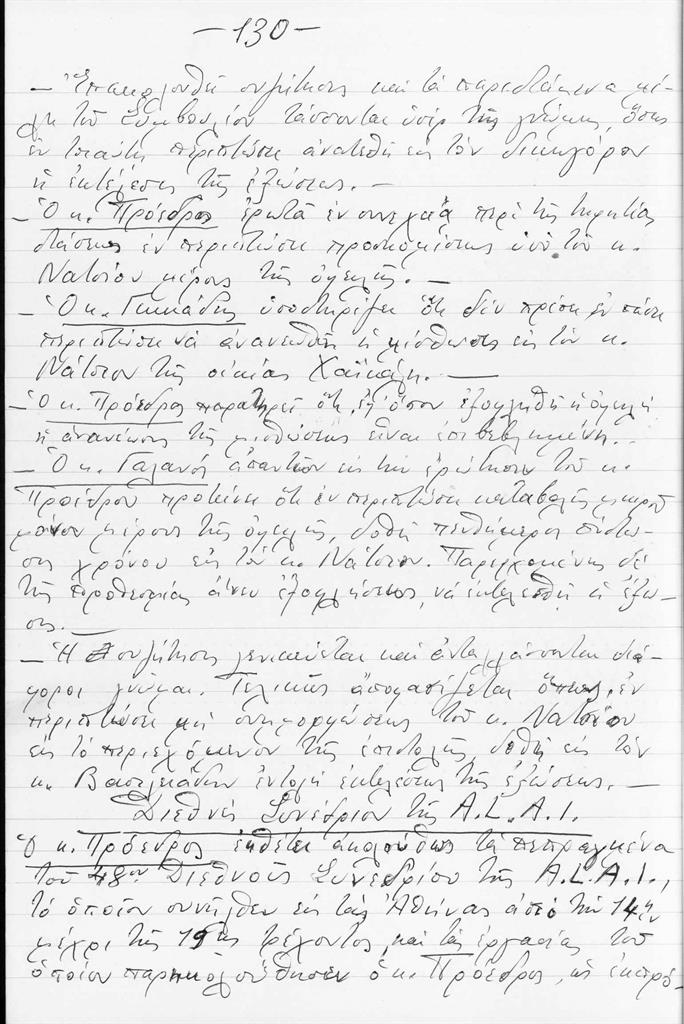 - 130 -
- Ἐπακολουθεῖ συζήτησις καὶ τὰ παριστάμενα μέ-
λη τοῦ Συμβουλίου τάσσονται ὑπὲρ τῆς γνώμης, ὅπως
ἐν τοιαύτῃ περιπτώσει ἀνατεθῇ εἰς τὸν δικηγόρον
ἡ ἐκτέλεσις τῆς ἐξώσεως. -
- Ὁ κ. Πρόεδρος ἐρωτᾶ ἐν συνεχείᾳ περὶ τῆς τηρητέας
στάσεως ἐν περιπτώσει προσκομίσεως ὑπὸ τοῦ κ.
Νατσίου μέρους τῆς ὀφειλῆς. -
- Ὁ κ. ὑποστηρίζει ὅτι δὲν πρέπει ἐν πάσῃ
περιπτώσει νὰ ἀνανεωθῇ ἡ μίσθωσις εἰς τὸν κ.
Νάτσιον τῆς οἰκίας Χαϊκάλη. -
- Ὁ κ. Πρόεδρος παρατηρεῖ ὅτι, ἐφ' ὅσον ἐξοφληθῇ ἡ ὀφειλὴ
ἡ ἀνανέωσις τῆς μισθώσεως εἶναι ἐπιβεβλημένη. -
- Ὁ κ. Γαλανὸς ἀπαντῶν εἰς τὴν ἐρώτησιν τοῦ κ.
Προέδρου προτείνει ὅτι ἐν περιπτώσει καταβολῆς μικροῦ
μόνον μέρους τῆς ὀφειλῆς, δοθῇ πενθήμερος πίστω-
σις χρόνου εἰς τὸν κ. Νάτσιον. Παρερχομένης δὲ
τῆς προθεσμίας ἄνευ ἐξοφλήσεως, νὰ ἐκτελεσθῇ ἡ ἔξω-
σις. -
- Ἡ συζήτησις γενικεύεται καὶ ἀνταλλάσσονται διά-
φοροι γνῶμαι. Τελικῶς ἀποφασίζεται ὅπως, ἐν
περιπτώσει μὴ συμμορφώσεως τοῦ κ. Νατσίου
εἰς τὸ περιεχόμενον τῆς ἐπιστολῆς, δοθῇ εἰς τὸν
κ. Βασιλειάδην ἐντολὴ ἐκτελέσεως τῆς ἐξώσεως. -
Διεθνὲς Συνέδριον τῆς A.L.A.I.
Ὁ κ. Πρόεδρος ἐκθέτει ἀκολούθως τὰ πεπραγμένα
τοῦ 48ου Διεθνοῦς Συνεδρίου τῆς A.L.A.I.,
τὸ ὁποῖον συνῆλθεν εἰς τὰς Ἀθήνας ἀπὸ τὴν 14ην
μέχρι τῆς 19ης τρέχοντος, καὶ τὰς ἐργασίας τοῦ
ὁποίου παρηκολούθησεν ὁ κ. Πρόεδρος, ὡς ἐκπρό-